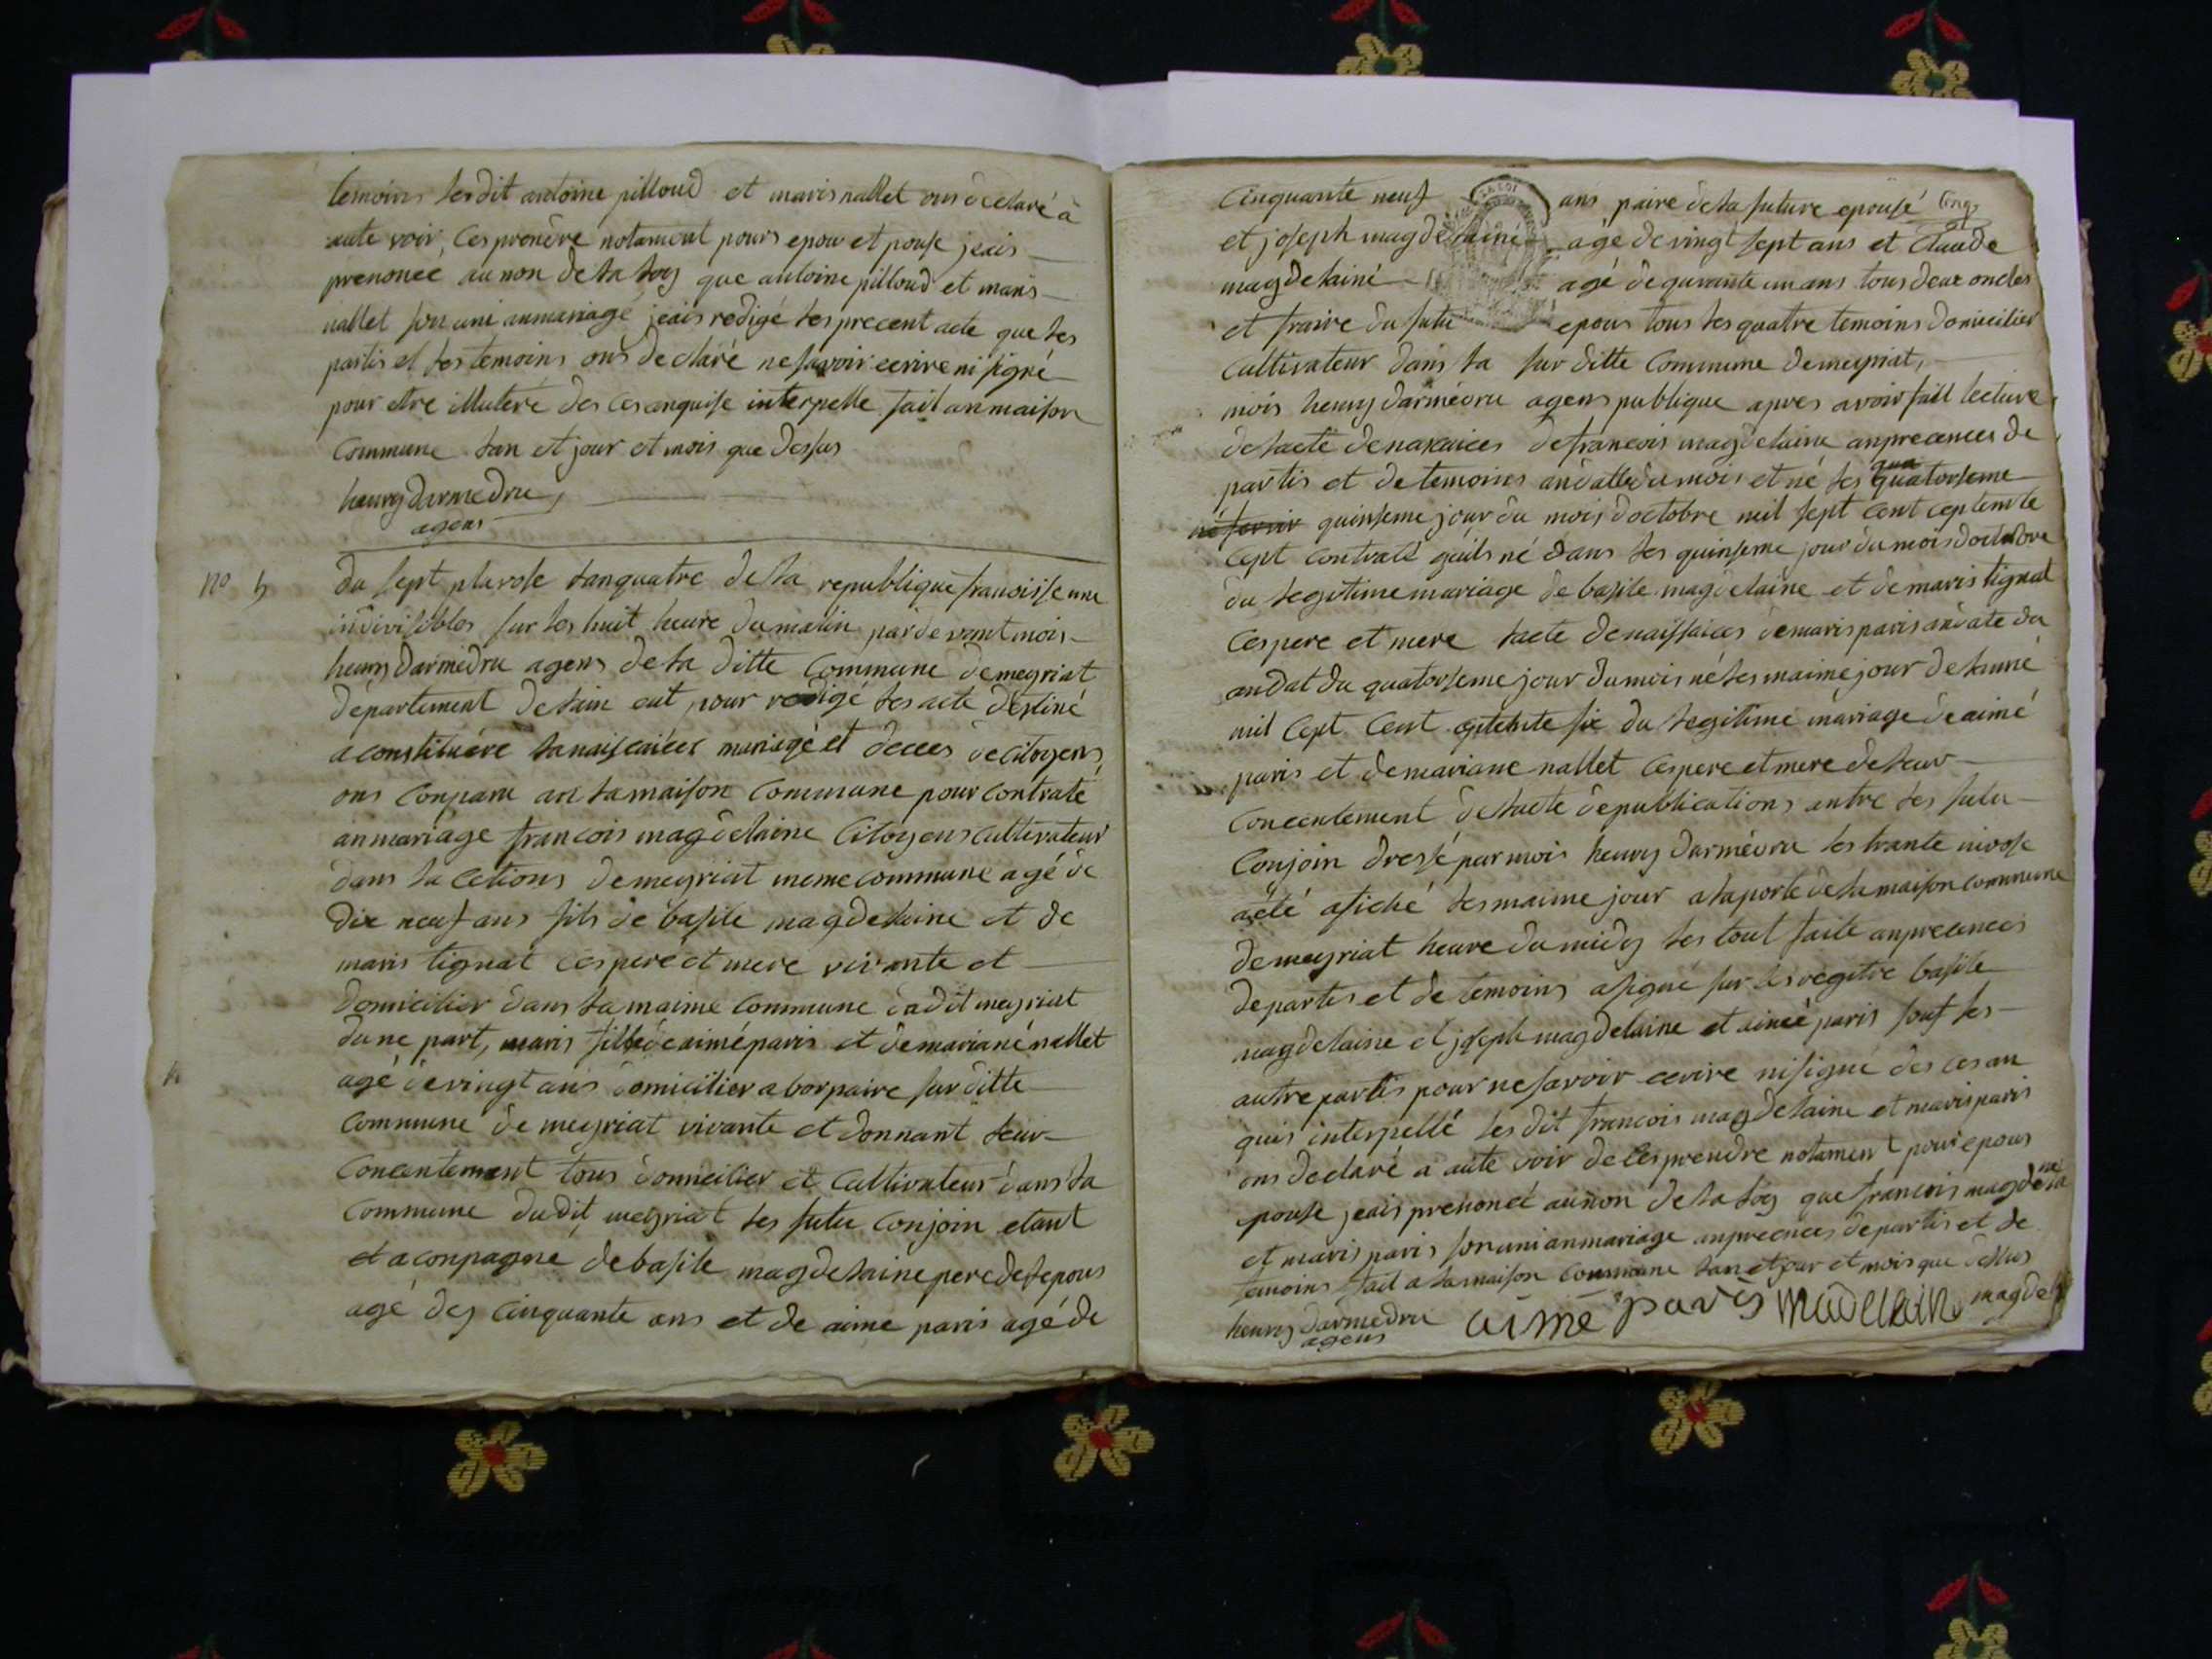 temoins lesdit antoine pilloud et maris nallet ons declaré à
aute voir, cesprenère notament pours epour et pouse jeais
prenonceé au non de la loy que antoine pilloud et maris
nallet son uni anmariage jeais redigé les precent acte que les
partis et les temoins ons declaré ne savoir ecrire ni signé
pour etre illuteré des ces anquise interpelle fait anmaison
commune lan et jour et mois que dessus
henry darmedru,
agens
no 5
du sept pluvose lanquatre de la republique fransisse une
indivisiblos sur les huit heure du matin par devant mois
henry darmedru agens de la ditte commune de meyriat
departement de lain eut pour redigé les acte destiné
a constituère lanaiscaices mariage et decees de citoyens
ons conparu an lamaison commune pour contraté
anmariage francois magdelaine citoyens cultivateur
dans la cetions de meyriat meme commune agé de
dix neuf ans fils de basile magdelaine et de
maris tignat cespere et mere vivante et
domicilier dans la maime commune dudit meyriat
dune part, maris fille de aimé paris et de mariane nallet
agé de vingt ans domicilier a borpaire sur ditte
commune de meyriat vivante et donnant leur
concentement tous domicilier et cultivateur dans la
commune dudit meyriat les futu conjoin etant
et aconpagne de basile magdelaine pere de lepous
agé des cinquante ans et de aimé paris agé de
cinquante neuf ans paire de la future epousé
et joseph magdelainé agé de vingt sept ans et claude
magdelainé agé de quarante un ans tous deux oncles
et fraire du futu epous tous les quatre temoins domicilier
cultivateur dans la sur ditte commune de meyriat,
mois henry darmedru agens publique apres avoir fait lecture
de lacte denaxaices de francois magdelaine anprecences de
partis et de temoins andatte du mois et né les quatorseme
né savoir quinseme jour du mois doctobre mil sept cent ceptente
cept contraté quils né dans les quinseme jour du mois doctobre
du legitime mariage de basile magdelaine et de maris tignat
cespere et mere lacte denaissaices de maris paris andate du
andat du quatorseme jour du mois né les maime jour de lanné
mil cept cent ceptente six du legitime mariage de aimé
paris et de mariane nallet cespere et mere de leur
concentement de lacte depublications antre les futu
conjoin dressé par mois henry darmedru les trante nivose
acté afiché les maime jour a laporte de la maison commune
de meyriat heure du midy les tout faite anprecences
de partis et de temoins asigné sur les regitre basile
magdelaine et joseph magdelaine et aimeé paris souf les
autre partis pour ne savoir ecrire ni signé des ces an
quis interpellé les dit francois magdelaine et maris paris
ons declaré a aute voir de lesprendre notament pour epous
pouse jeais prenoncé au non de la loy que francois magdelaine
et maris paris son uni anmariage anprecences de partis et de
temoins fait a lamaison commune lan et jour et mois que dessus
henry darmedru aimé paris madelaine magdel
agens